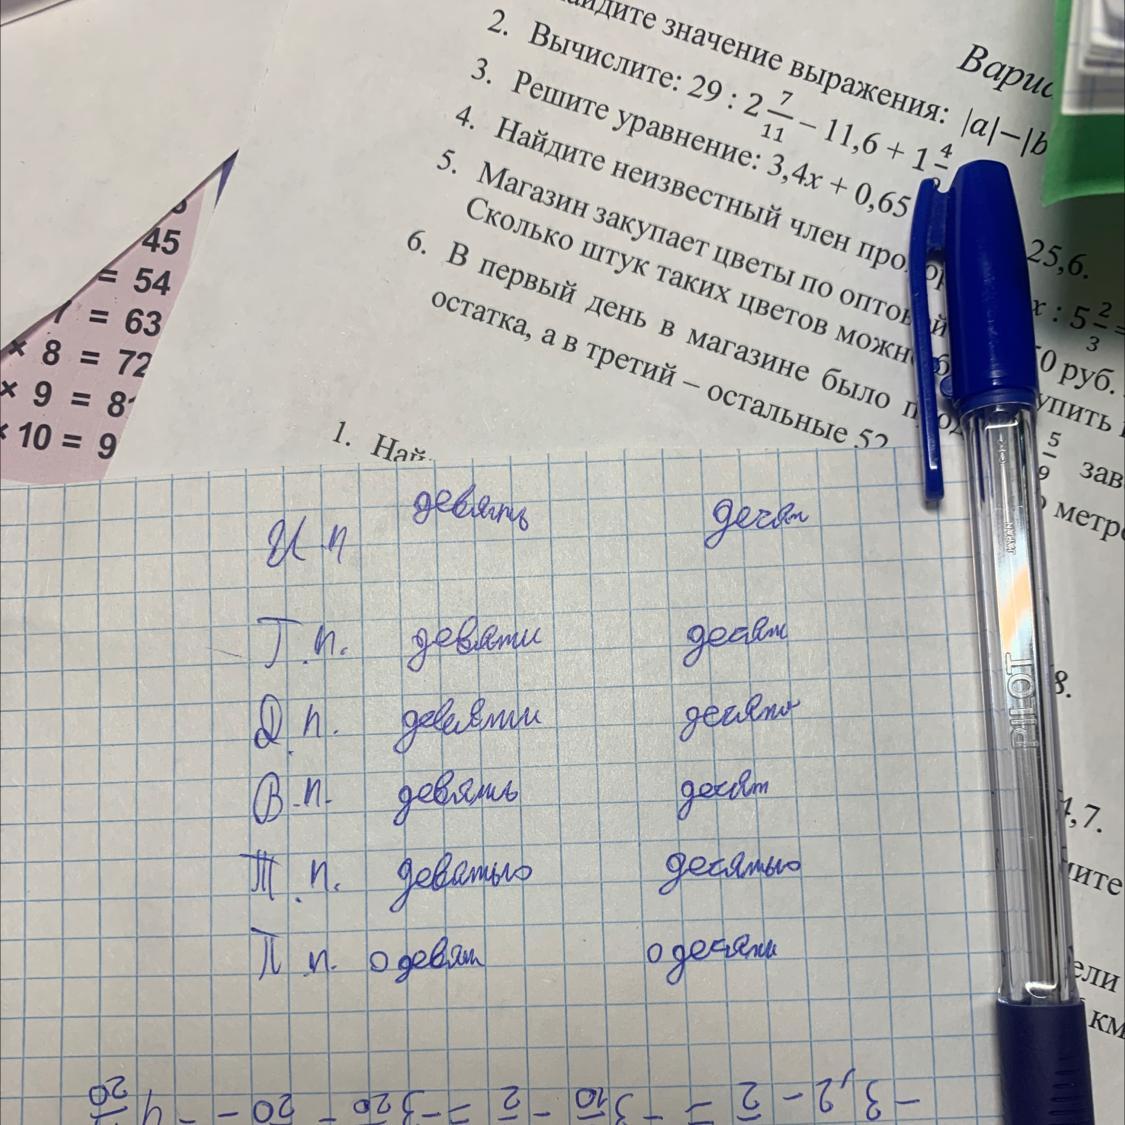 Вариа
айдите значение выражения: |a|−|b
2. Вычислите: 29 : 2 7/11 − 11,6 + 1 4/
3. Решите уравнение: 3,4x + 0,65
25,6.
4. Найдите неизвестный член x : 5 2/3 =
5. Магазин закупает цветы по 50 руб.
Сколько штук таких цветов можно
6. В первый день в магазине было 5/9 зав
остатка, а в третий – остальные 52 метр
1. Най
45
= 54
7 = 63
× 8 = 72
× 9 = 8
× 10 = 9
И п девять десят
Г.п. девяти десят
Д.п. девяти десяти
В.п. девять десят
Т.п. девятью десятью
П п. о девят о десяти
PILOT
8.
4,7.
ите
ели
км